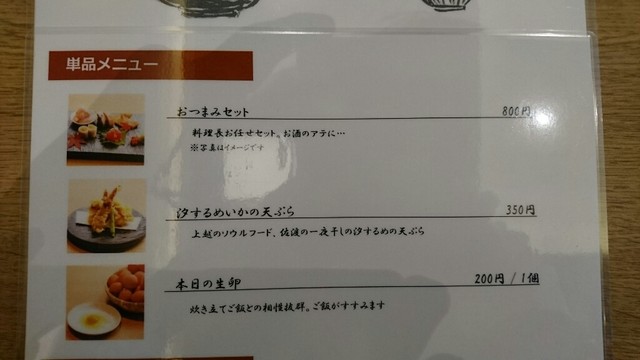 単品メニュー
おつまみセット 800円
料理長お任せセット。お酒のアテに…
※写真はイメージです
汐するめいかの天ぷら 350円
上越のソウルフード、佐渡の一夜干しの汐するめの天ぷら
本日の生卵 200円 / 1個
炊き立てご飯との相性抜群。ご飯がすすみます